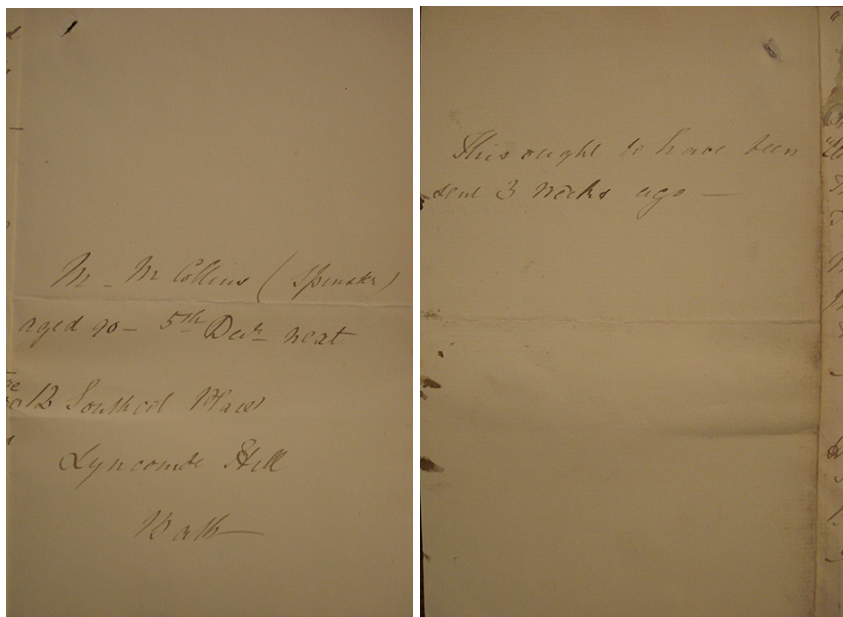 M - M Collins (Spinster)
aged 90 - 5th Decr next
12 Southcot Place
Lyncombe Hill
Bath
This ought to have been
sent 3 weeks ago —